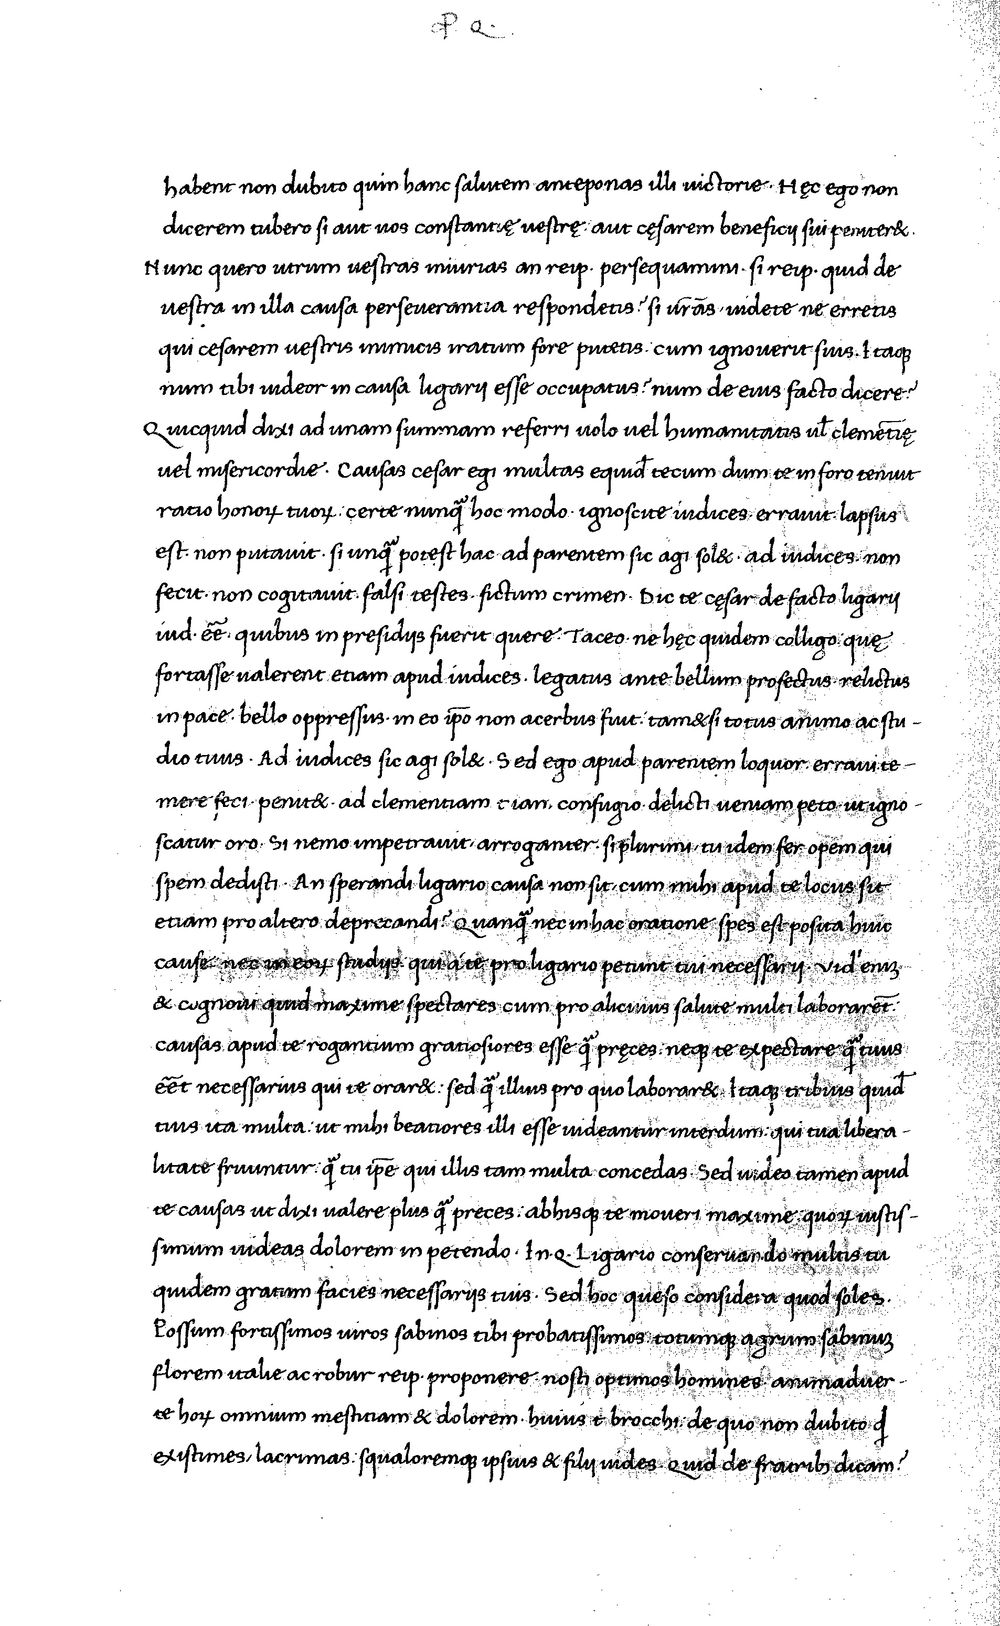 P Q.
habent non dubito quin hanc salutem anteponas illi uictorie. Hęc ego non
dicerem tubero si aut uos constantię uestrę. aut cęsarem beneficij sui peniter&.
Nunc quero utrum uestras iniurias an reip. persequamini. si reip. quid de
uestra in illa causa perseuerantia respondetis? si ur̄as, uidete ne erretis
qui cesarem uestris inimicis iratum fore putetis. cum ignouerit suis. Itaqꝫ
num tibi uideor in causa ligarij esse occupatus? num de eius facto dicere?
Quicquid dixi ad unam summam referri uolo uel humanitatis ul̄ clemētię
uel misericordie. Causas cesar egi multas equid̄ tecum dum te in foro tenuit
ratio honoꝝ tuoꝝ. certe nunq̄ hoc modo. ignoscite iudices. errauit. lapsus
est. non putauit. si unq̄ potest hac. ad parentem sic agi sol&. ad iudices. non
fecit. non cogitauit. falsi testes. fictum crimen. Dic te cęsar de facto ligarij
iud. eē. quibus in presidijs fuerit quere. Taceo. ne hęc quidem colligo. quę
fortasse ualerent etiam apud iudices. legatus ante bellum profectus. relictus
in pace. bello oppressus. in eo ip̄o non acerbus fuit. tam&si totus animo ac stu-
dio tuus. Ad iudices sic agi sol&. Sed ego apud parentem loquor. erraui te-
mere feci. penit&. ad clementiam tuam confugio. delicti ueniam peto. ut igno-
scatur oro. Si nemo impetrauit. arroganter. si plurimi. tu idem fer opem qui
spem dedisti. An sperandi ligario causa non sit. cum mihi apud te locus sit
etiam pro altero deprecandi? Quanq̄ nec in hac oratione spes est posita huic
cause. nec in eoꝝ studijs qui a te pro ligario petunt tui necessarij. Vid' enīꝫ
& cognoui quid maxime spectares cum pro alicuius salute multi laborarēt.
causas apud te rogantium gratiosiores esse q̄ pręces. neqꝫ te expectare q̄ tuus
eēt necessarius qui te orar&. sed q̄ illius pro quo laborar&. Itaqꝫ tribuis quid̄
tuis ita multa. ut mihi beatiores illi esse uideantur interdum. qui tua libera-
litate fruuntur. q̄ tu ip̄e qui illis tam multa concedas. Sed uideo tamen apud
te causas ut dixi ualere plus q̄ preces. abhisqꝫ te moueri maxime. quoꝝ iustis-
simum uideas dolorem in petendo. In Q. Ligario conseruando multis tu
quidem gratum facies necessarijs tuis. Sed hoc queso considera quod soles.
Possum fortissimos uiros sabinos tibi probatissimos. totumqꝫ agrum sabinuꝫ
florem italie ac robur reip. proponere. nosti optimos homines. animaduer-
te hoꝝ omnium mestitiam & dolorem. huius t. brocchi. de quo non dubito qd̄
existimes, lacrimas. squaloremqꝫ ipsius & filij uides. Quid de fratribꝫ dicam?